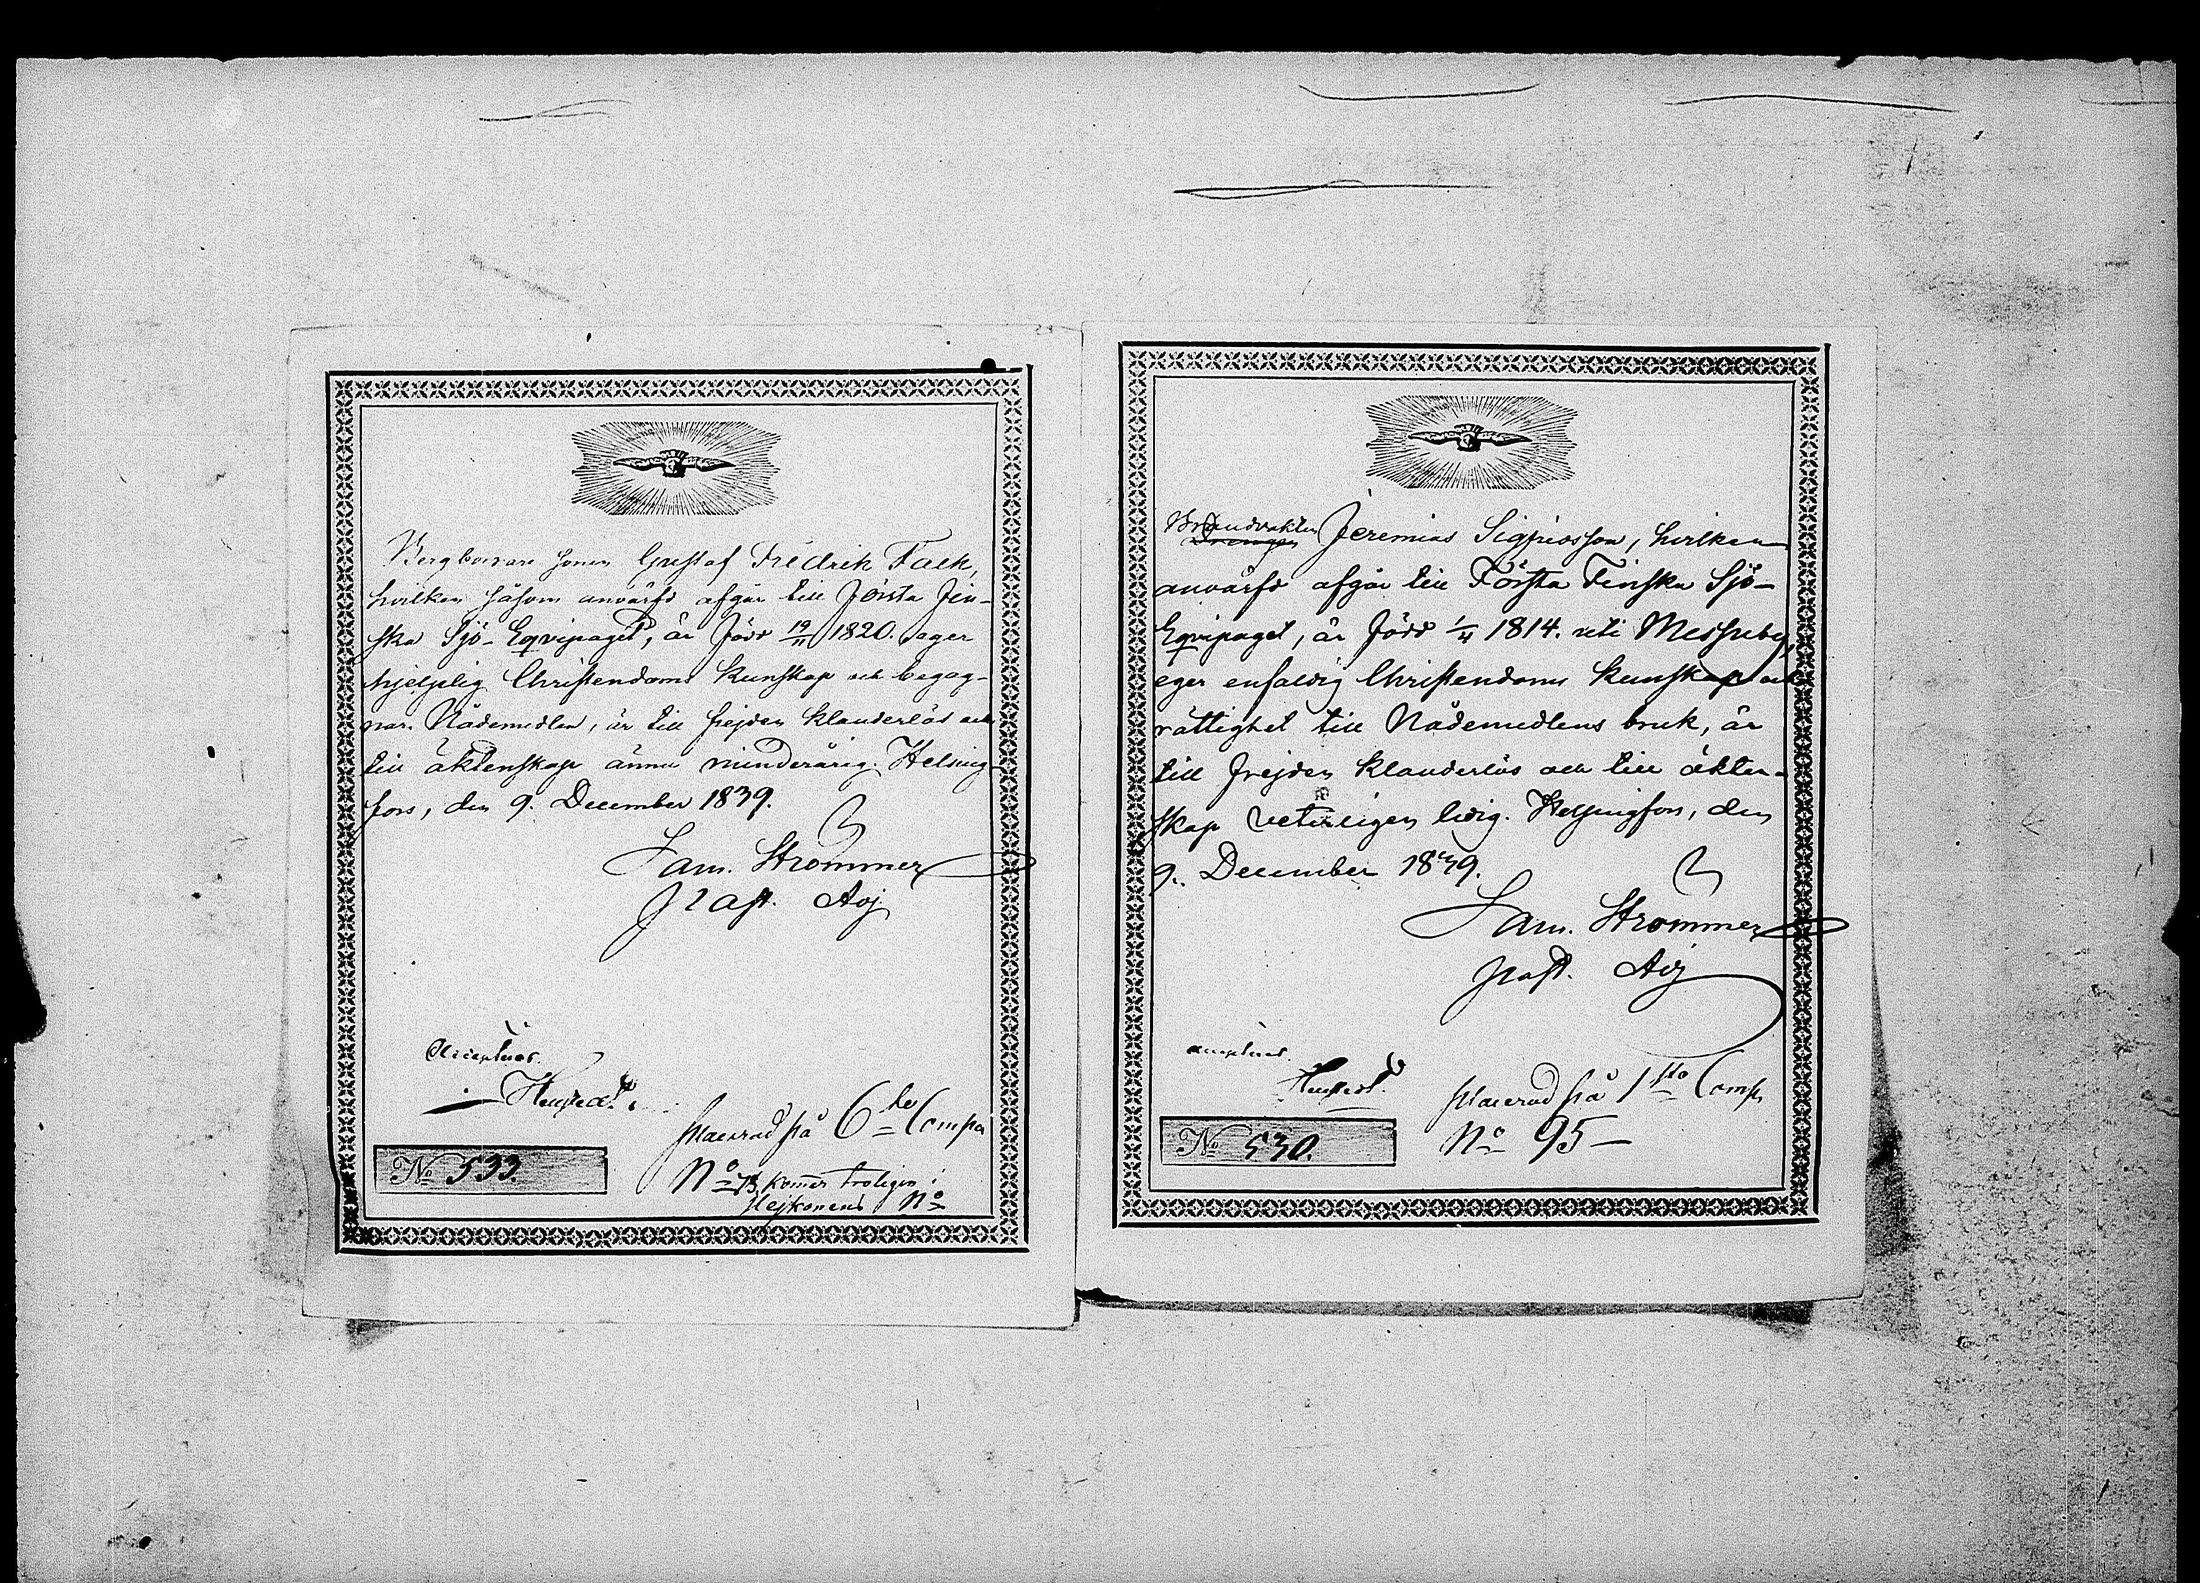 Bergborare sonen Gustaf Fredrik Falk,
hvilken såsom anvärfd afgår till Första Fin-
ska Sjö-Eqvipaget, är född 19/11 1820. eger
hjelplig Christendoms kunskap och begag-
nar Nådemedlen, är till frejden klanderlös och
till äktenskap ännu minderårig. Helsing-
fors, den 9. December 1839.
Sam. Strömmer
Past. Adj.
Accepteras.
placerad på 6te Compa
No 533.
No 73 kommer troligen i
Hejkonens No
Brandvakten
Drengen Jeremias Sigfridsson, hvilken
anvärfd afgår till Första Finska Sjö-
Eqvipaget, är född 1/4 1814. uti Messuby,
eger enfaldig Christendoms kunskap och
rättighet till Nådemedlens bruk, är
till frejden klanderlös och till äkten-
skap veterligen ledig. Helsingfors, den
9. December 1839.
Sam. Strömmer
Past. Adj.
Accepteras.
placerad på 1sta Comp.
No 530.
No 95